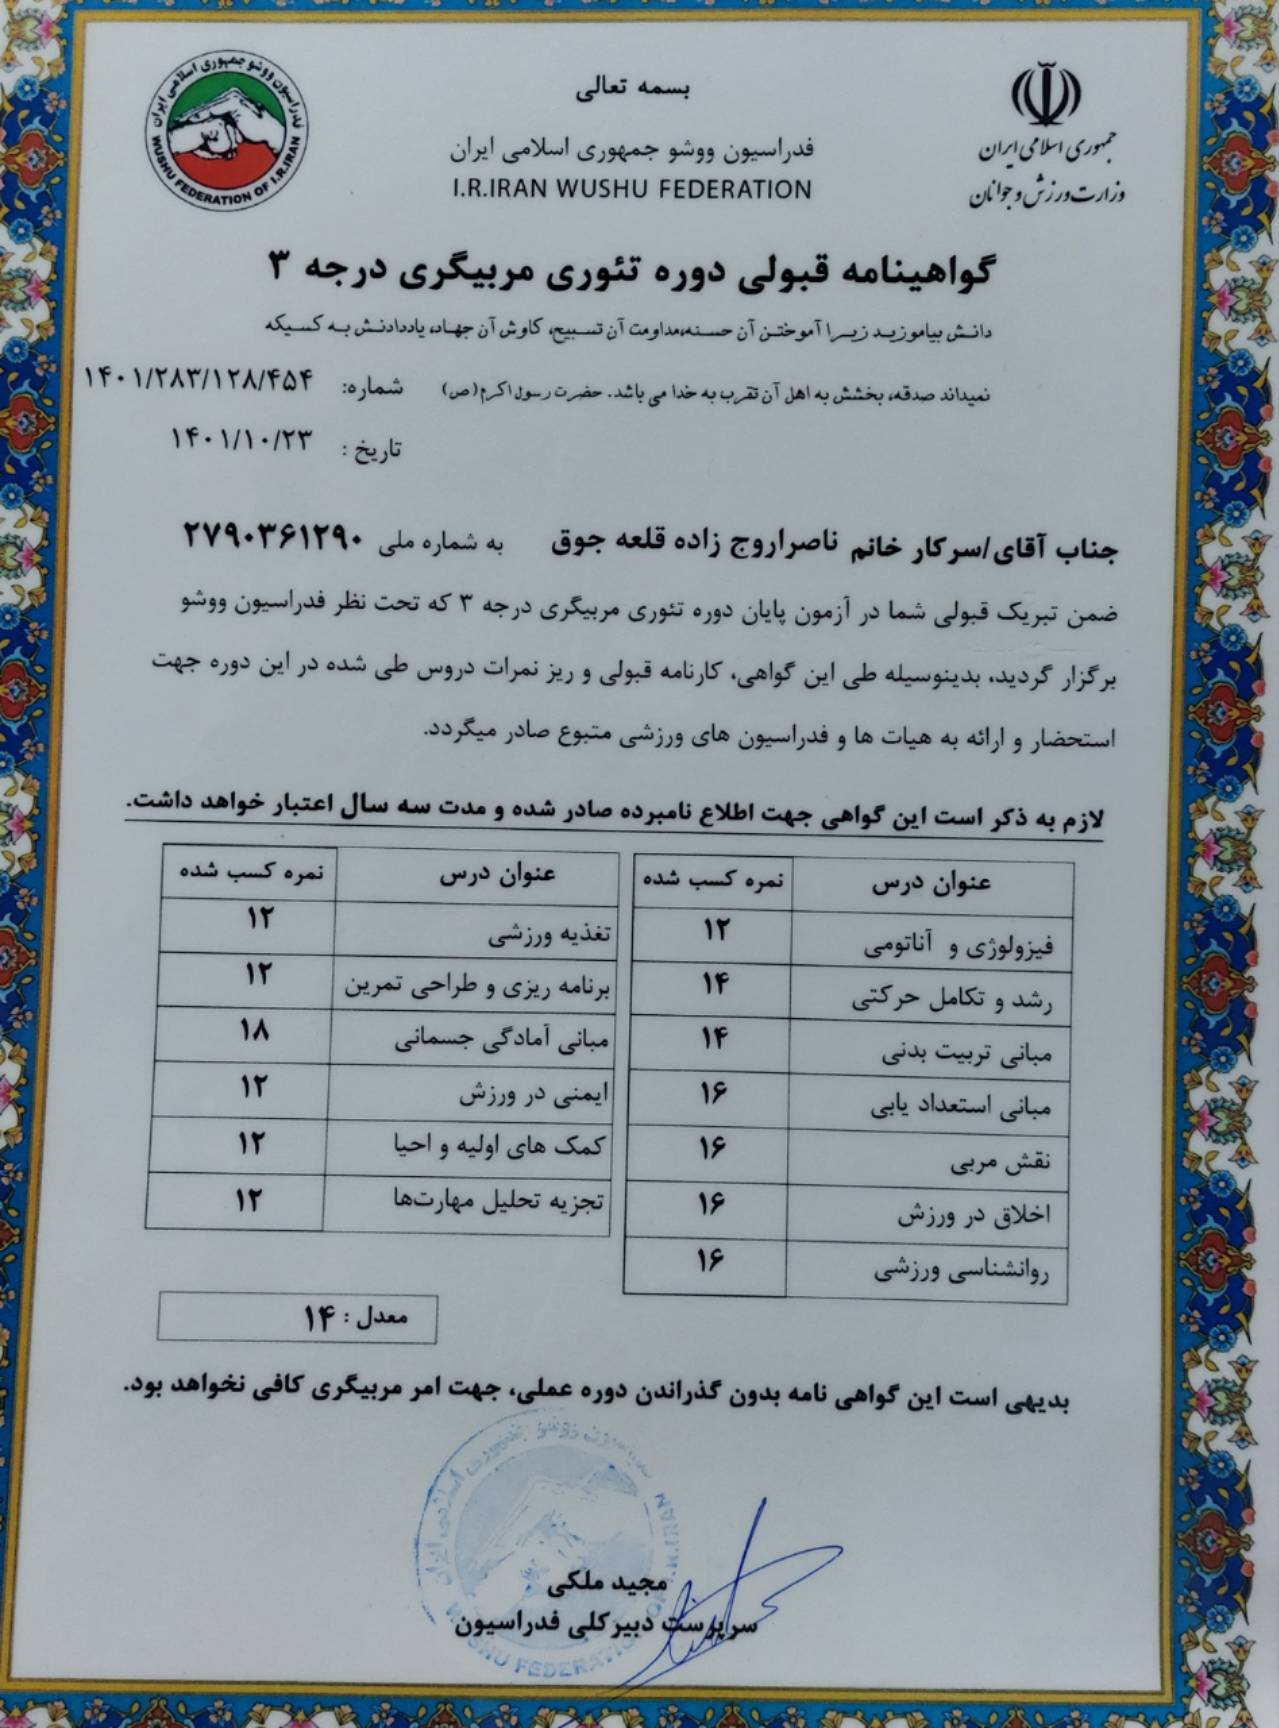 بسمه تعالی
جمهوری اسلامی ایران
وزارت ورزش و جوانان
فدراسیون ووشو جمهوری اسلامی ایران
I.R.IRAN WUSHU FEDERATION
فدراسیون ووشو جمهوری اسلامی ایران
WUSHU FEDERATION OF I.R.IRAN
گواهینامه قبولی دوره تئوری مربیگری درجه ۳
دانش بیاموزید زیرا آموختن آن حسنه،مداومت آن تسبیح، کاوش آن جهاد، یاددادنش به کسیکه
نمیداند صدقه، بخشش به اهل آن تقرب به خدا می باشد. حضرت رسول اکرم(ص)
شماره: ۱۴۰۱/۲۸۳/۱۲۸/۴۵۴
تاریخ : ۱۴۰۱/۱۰/۲۳
جناب آقای/سرکار خانم ناصراروج زاده قلعه جوق به شماره ملی ۲۷۹۰۳۶۱۲۹۰
ضمن تبریک قبولی شما در آزمون پایان دوره تئوری مربیگری درجه ۳ که تحت نظر فدراسیون ووشو
برگزار گردید، بدینوسیله طی این گواهی، کارنامه قبولی و ریز نمرات دروس طی شده در این دوره جهت
استحضار و ارائه به هیات ها و فدراسیون های ورزشی متبوع صادر میگردد.
لازم به ذکر است این گواهی جهت اطلاع نامبرده صادر شده و مدت سه سال اعتبار خواهد داشت.
عنوان درس نمره کسب شده
فیزولوژی و آناتومی ۱۲
رشد و تکامل حرکتی ۱۴
مبانی تربیت بدنی ۱۴
مبانی استعداد یابی ۱۶
نقش مربی ۱۶
اخلاق در ورزش ۱۶
روانشناسی ورزشی ۱۶
عنوان درس نمره کسب شده
تغذیه ورزشی ۱۲
برنامه ریزی و طراحی تمرین ۱۲
مبانی آمادگی جسمانی ۱۸
ایمنی در ورزش ۱۲
کمک های اولیه و احیا ۱۲
تجزیه تحلیل مهارت‌ها ۱۲
معدل : ۱۴
بدیهی است این گواهی نامه بدون گذراندن دوره عملی، جهت امر مربیگری کافی نخواهد بود.
مجید ملکی
سرپرست دبیرکلی فدراسیون